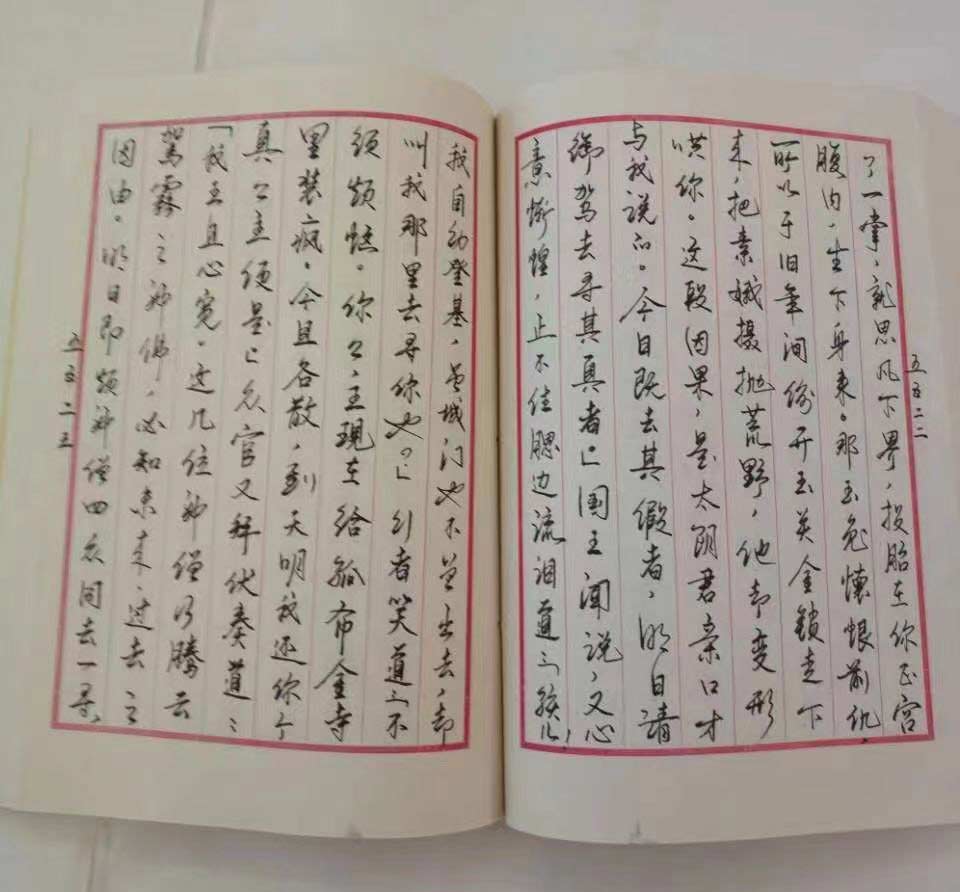 了一掌，就思凡下界，投胎在你正宫
腹内，生下身来。那玉兔怀恨前仇，
所以于旧年间偷开玉关金锁走下
来，把素娥摄抛荒野，他却变形
哄你。这段因果，是太阴君亲口才
与我说的。今日既去其假者，明日请
御驾去寻其真者」国王闻说，又心
意惭惶，止不住腮边流泪道：「孩儿！
五五二二
我自幼登基，虽城门也不曾出去，却
叫我那里去寻你也？」行者笑道：「不
须烦恼。你公主现在给孤布金寺
里装疯。今且各散，到天明我还你个
真公主便是」众官又拜伏奏道：
「我王且心宽。这几位神僧乃腾云
驾雾之神佛，必知未来、过去之
因由。明日即烦神僧四众同去一寻，
五五二三